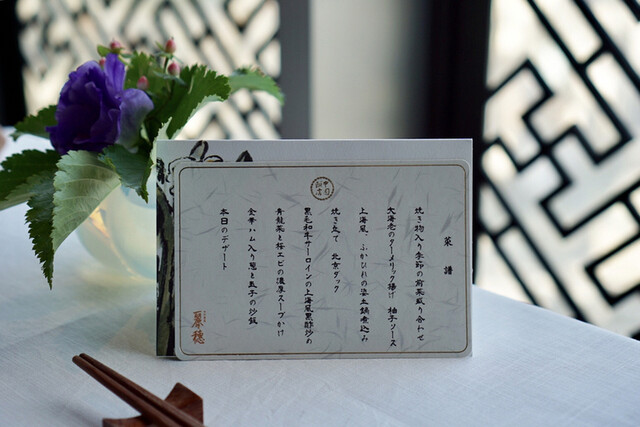 菜譜
焼き物入り季節の前菜盛り合わせ
大海老のターメリック揚げ 柚子ソース
上海風、ふかひれの姿土鍋煮込み
焼き立て 北京ダック
黒毛和牛サーロインの上海風黒酢炒め
青龍菜と桜エビの濃厚スープかけ
金華ハム入り葱と玉子の炒飯
本日のデザート